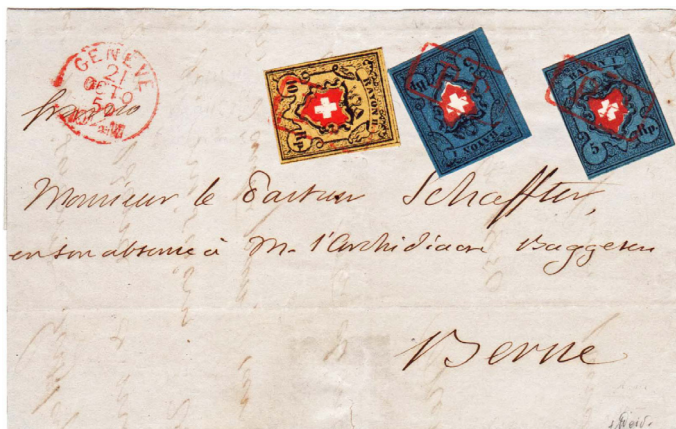 GENEVE
21
OCTO
50
franco
RAYON II
10 Rp.
RAYON I
5 Rp.
RAYON I
5 Rp.
Monsieur le Pasteur Schaffter,
en son absence à M. l'Archidiacre Baggesen
Berne